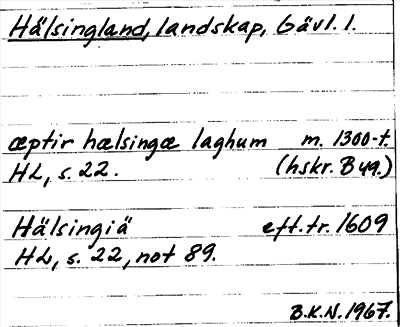 Hälsingland, landskap, Gävl. l.
æptir hælsingæ laghum m. 1300-t.
HL, s. 22. (hskr. B 49.)
Hälsingiä eft. tr. 1609
HL, s. 22, not 89.
B.K.N. 1967.